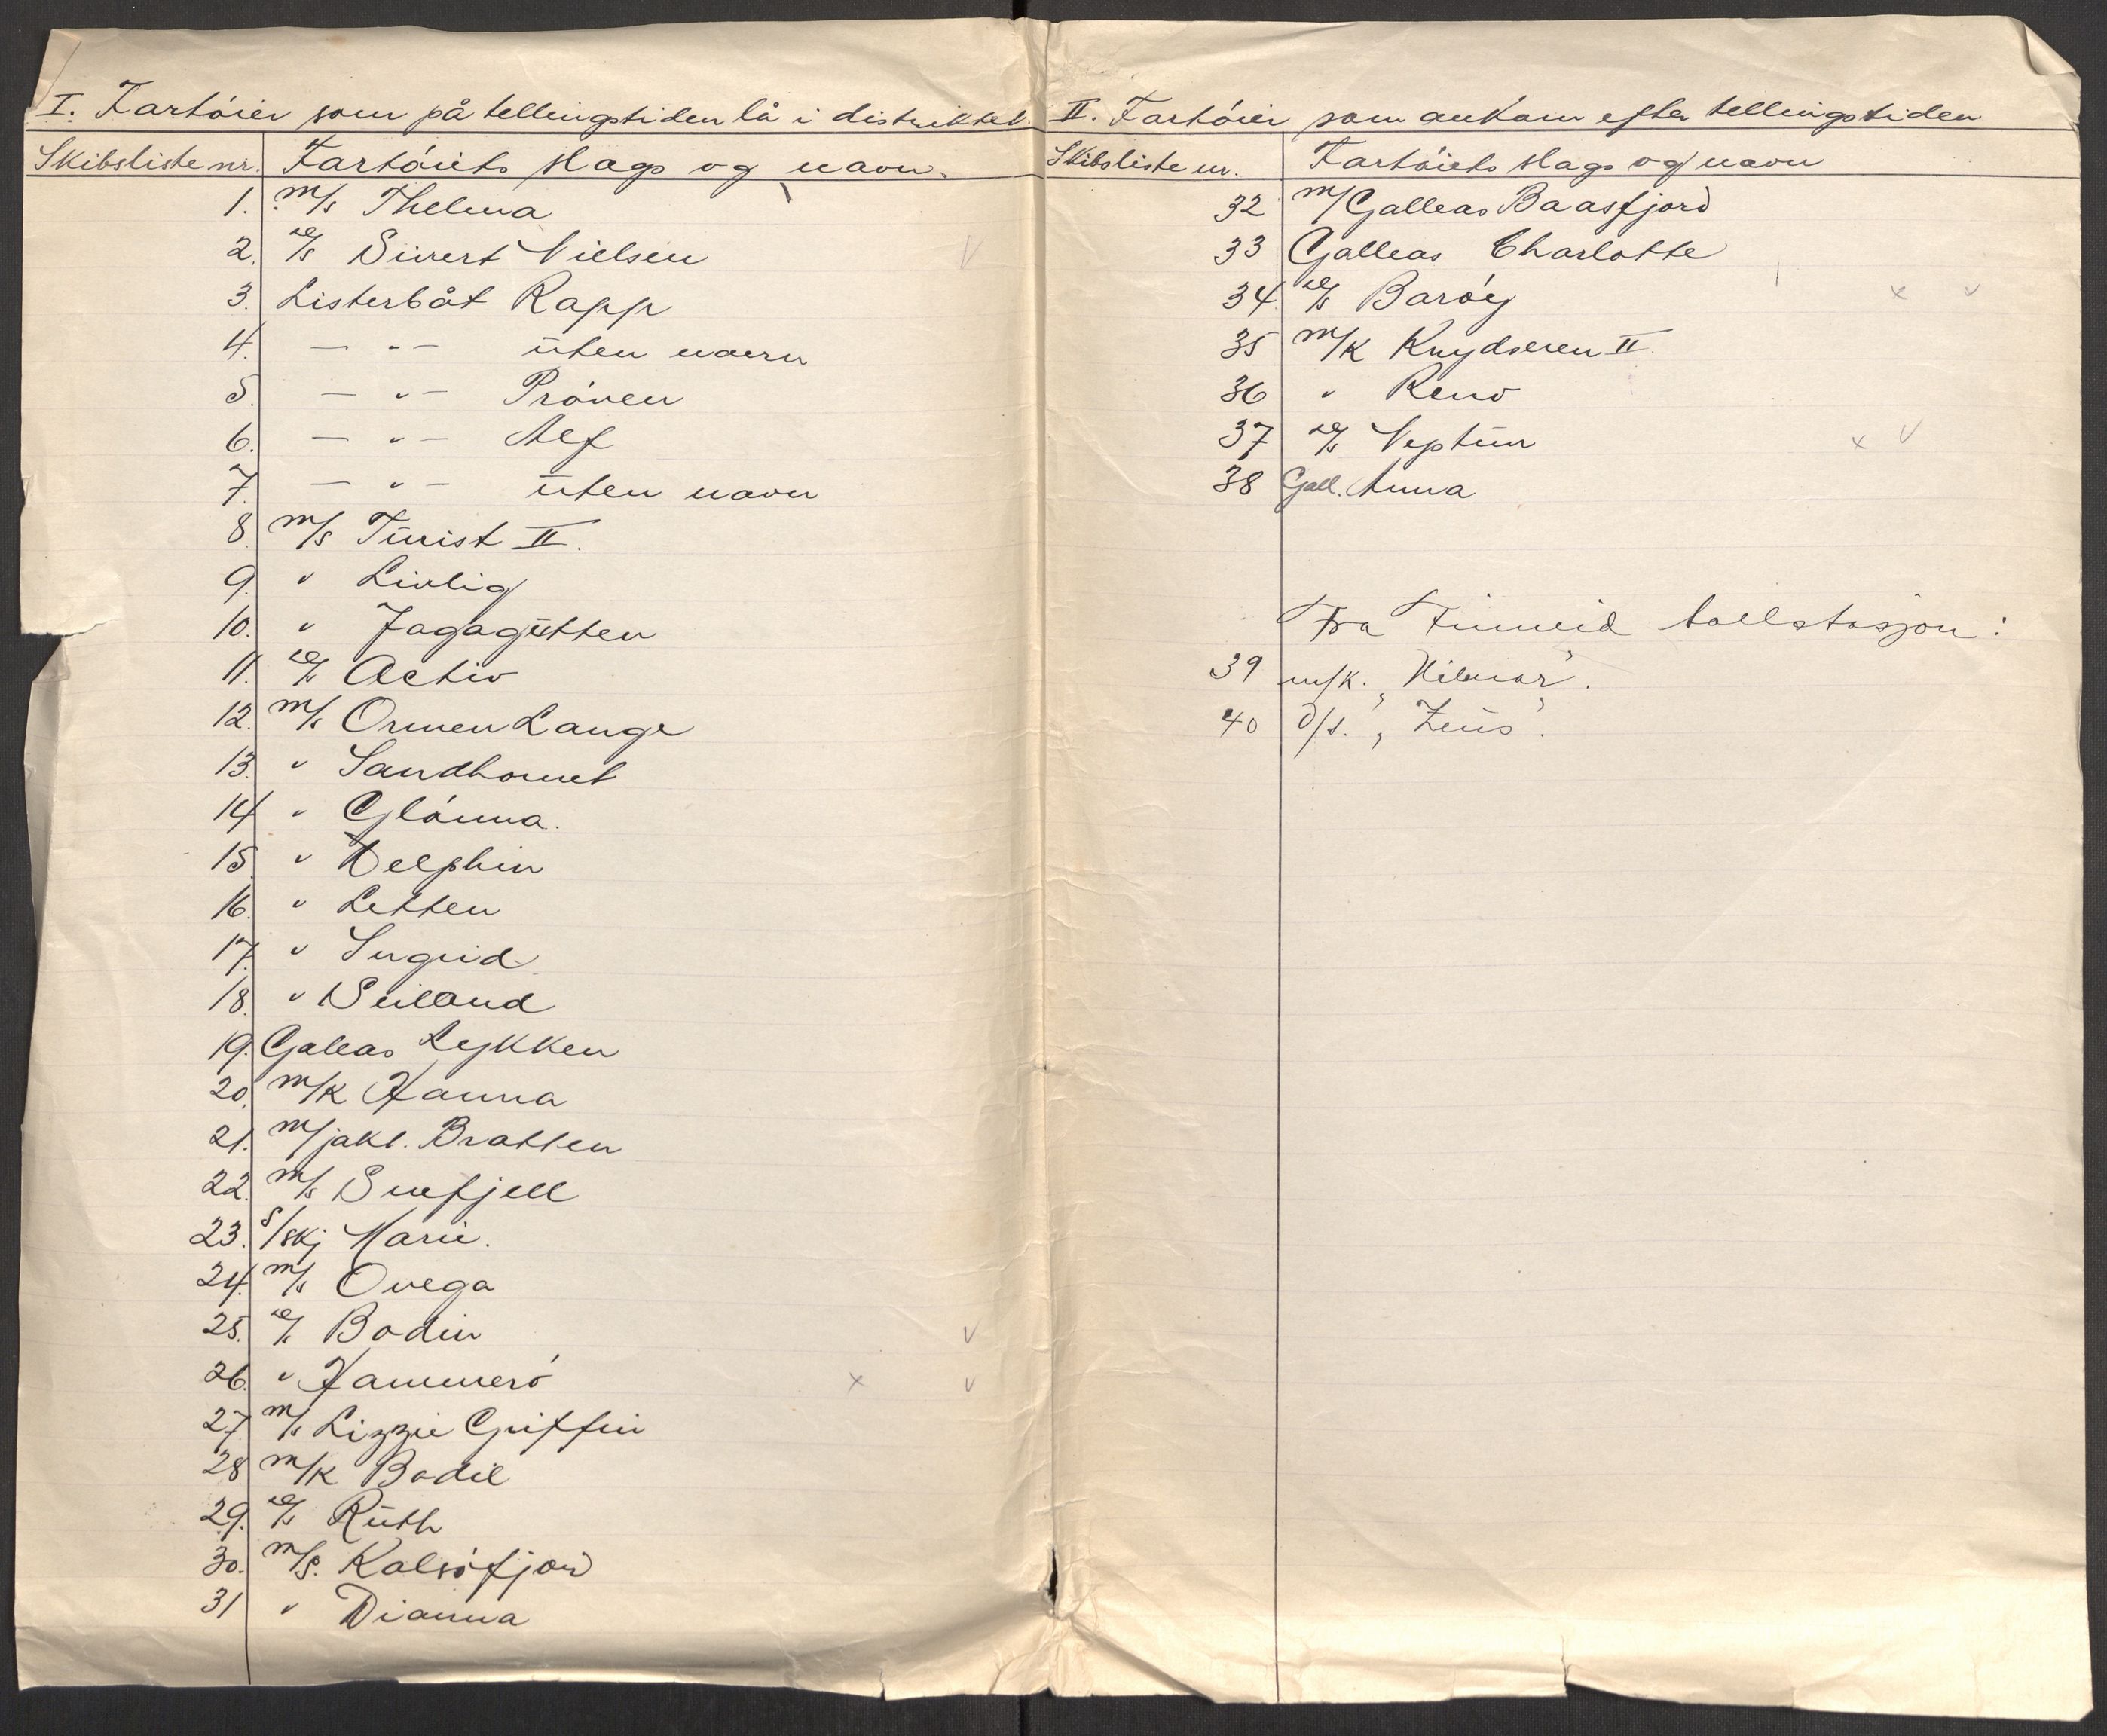 I. Fartøier som på tellingstiden lå i distriktet.
Skibsliste nr. Fartøiets slags og navn.
1. m/s Thelma
2. d/s Sivert Nielsen v
3. Listerbåt Rapp
4. — " — uten navn
5. — " — Prøven
6. — " — Alf
7. — " — uten navn
8. m/s Turist II.
9. " Livlig
10. " Jagagutten
11. d/s Activ
12. m/s Ormen Lange
13. " Sandhornet
14. " Glómna.
15. " Delphin
16. " Letten
17. " Sugrid
18. " Seiland
19. Galeas Lykken
20. m/k Hanna
21. m/jakt. Bratten
22. m/s Snefjell
23. s/skj Marie.
24. m/s Ovega
25. d/s Bodin v
26. " Hammerø x v
27. m/s Lizzie Griffin
28 m/k Bodil
29. d/s Ruth
30. m/s. Kalsøfjord
31 " Dianna
II. Fartøier som ankom efter tellingstiden
Skibsliste nr. Fartøiets slags og navn
32 m/Galleas Baasfjord
33 Galleas Charlotte
34. d/s Barøy x v
35 m/k Knydseren II.
36 " Reno
37 d/s Neptun x v
38 Gall. Anna
Fra Finneid tollstasjon:
39 m/k. „Hilmar".
40 D/s. „Zeus".